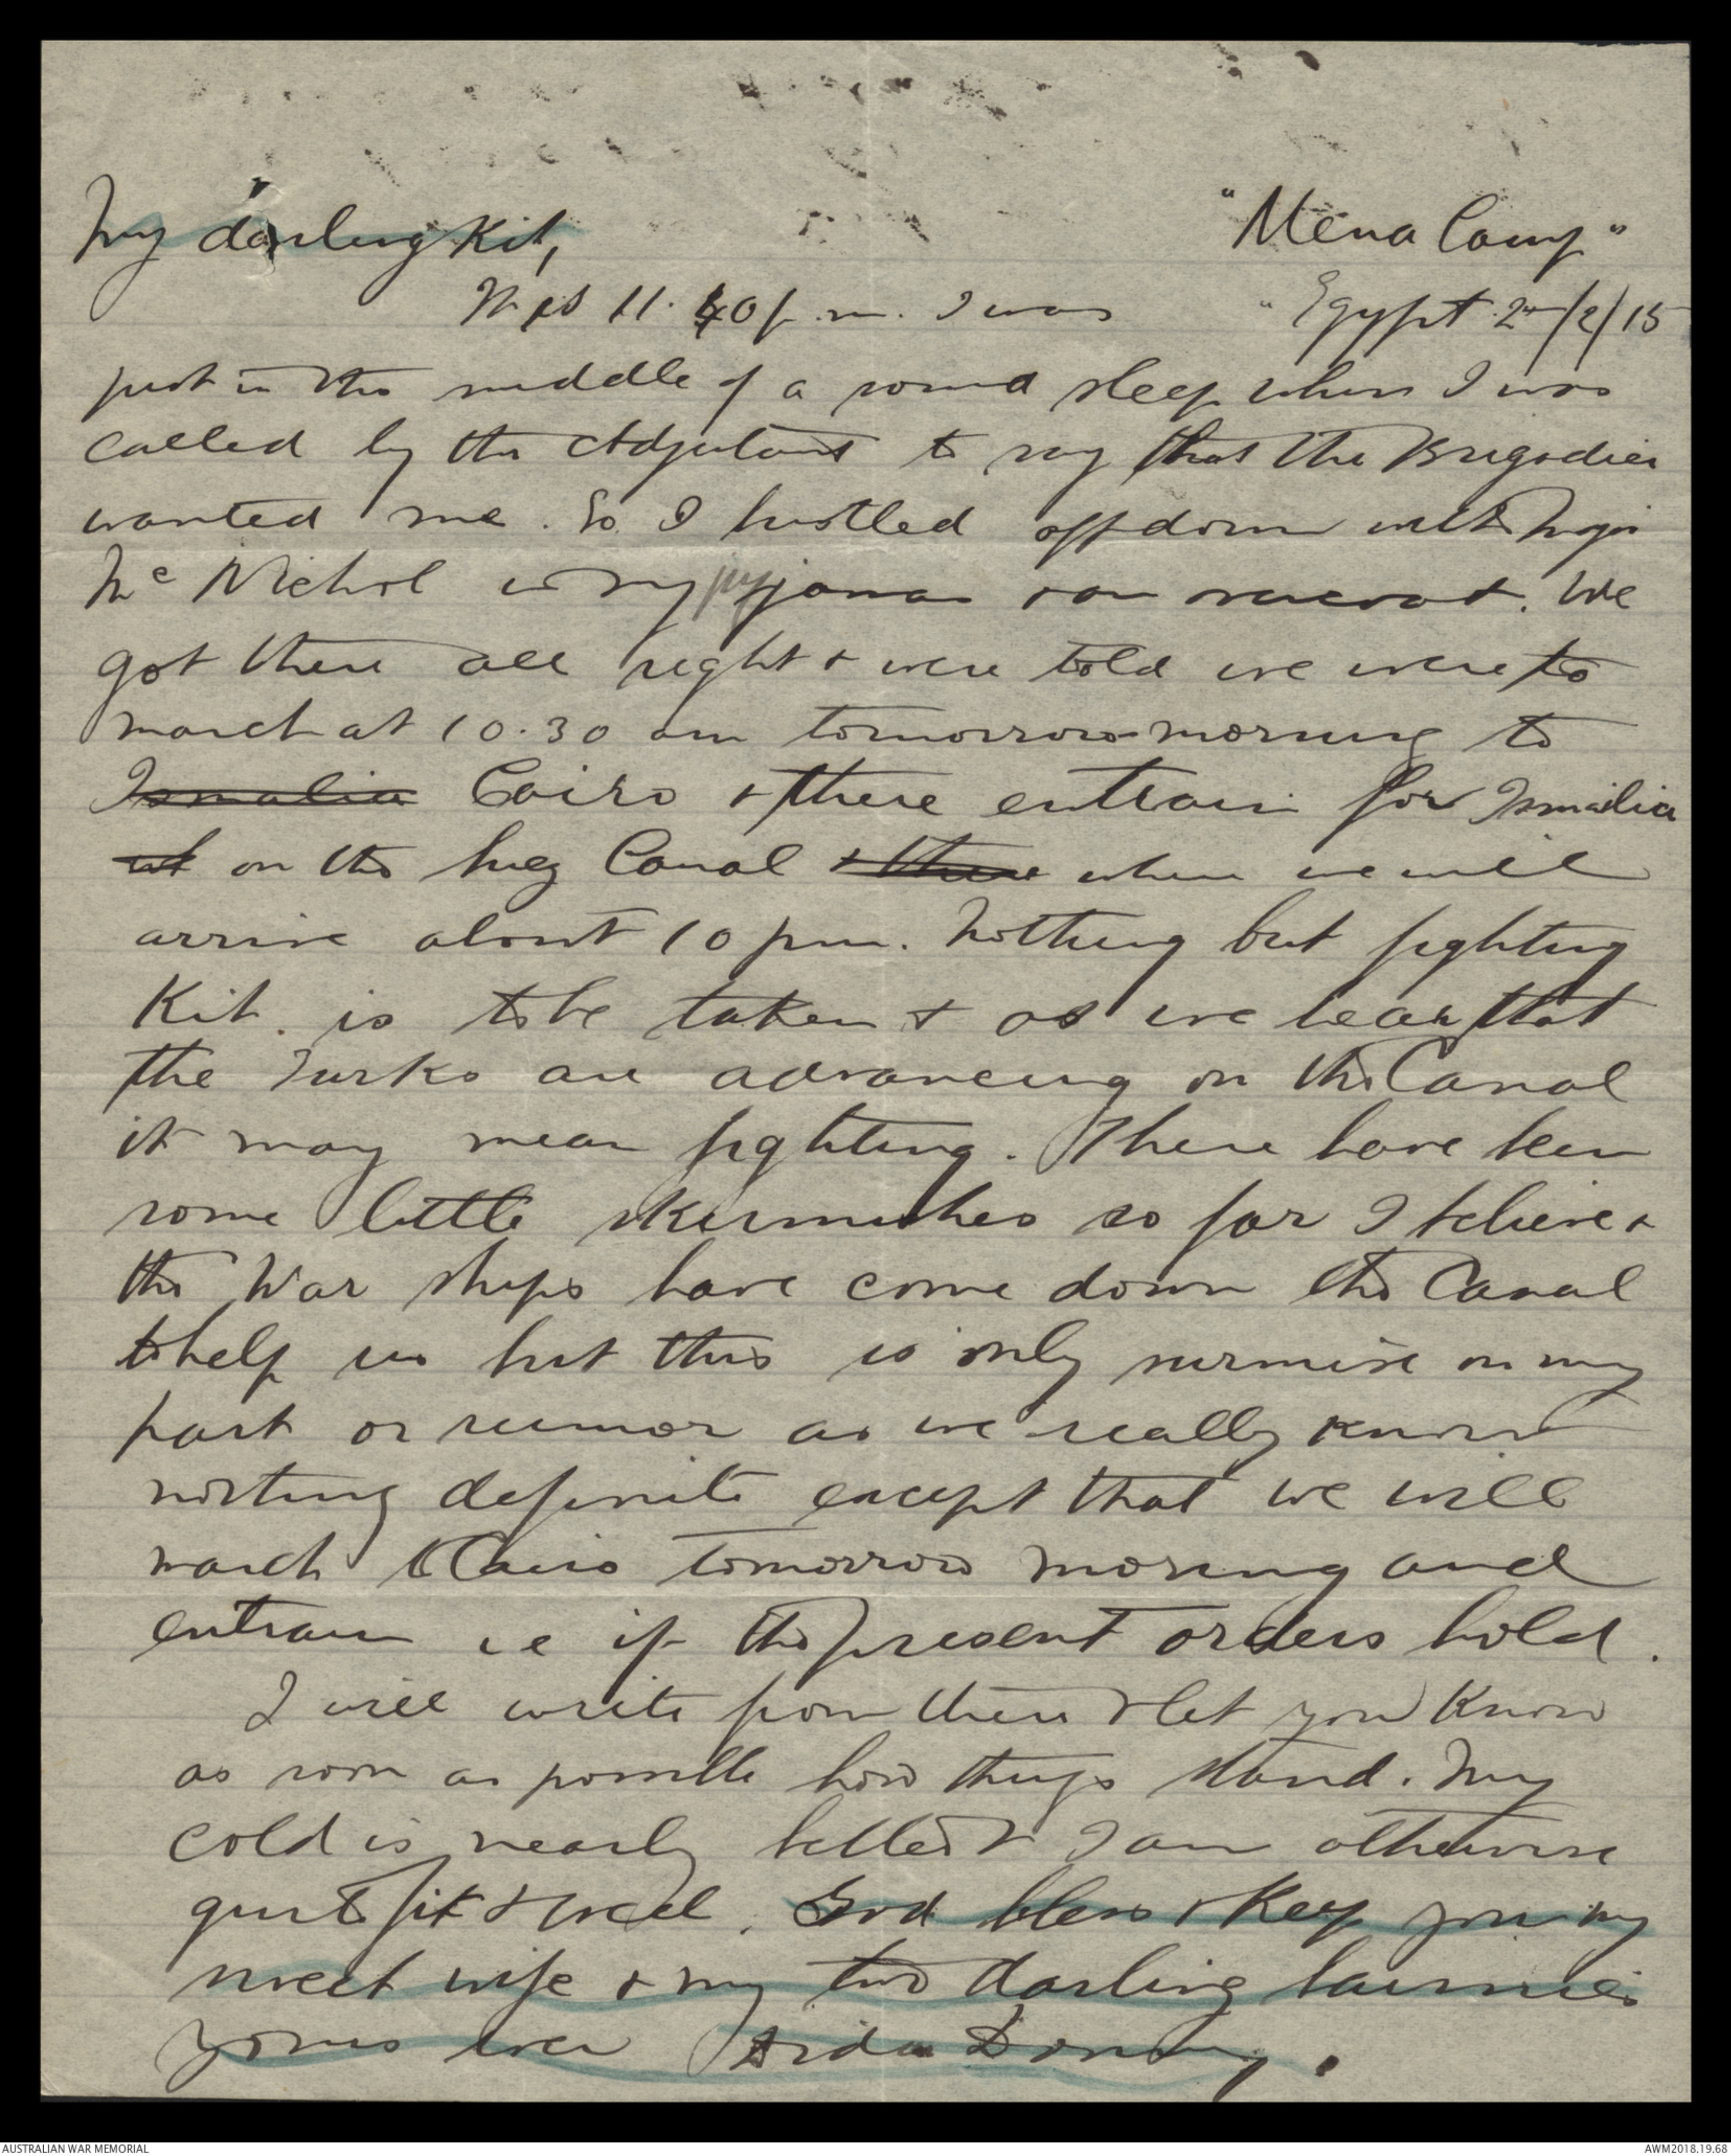 "Mena Camp"
My darling Kit,
Egypt 2nd/2/15
It is 11.40 p.m. I was
just in the middle of a sound sleep when I was
called by the Adjutant to say that the Brigadier
wanted me. So I hustled off down with Major
McNichol in my pyjamas & an overcoat. We
got there all right & were told we were to
march at 10.30 am tomorrow morning to
Ismalia Cairo & there entrain for Ismailia
at on the Suez Canal & there where we will
arrive about 10 pm. Nothing but fighting
Kit is to be taken & as we hear that
the Turks are advancing on the Canal
it may mean fighting. There have been
some little skirmishes so far I believe &
the War ships have come down the Canal
to help us but this is only surmise on my
part or rumor as we really know
nothing definite except that we will
march to Cairo tomorrow morning and
entrain ie if the present orders hold.
I will write from there & let you know
as soon as possible how things stand. My
cold is nearly better & I am otherwise
quite fit & well. God bless & Keep you my
sweet wife & my two darling
yours ever
AUSTRALIAN WAR MEMORIAL
AWM2018.19.68